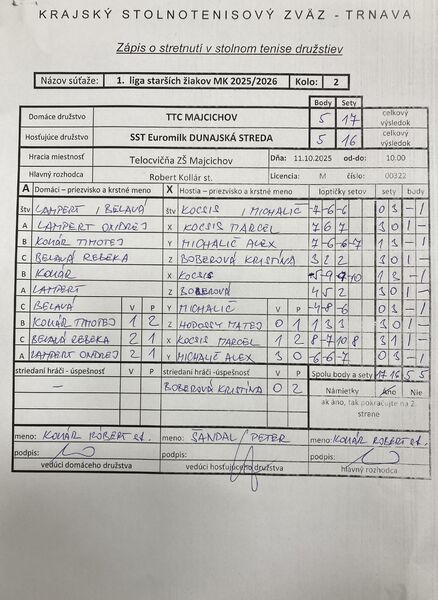 KRAJSKÝ STOLNOTENISOVÝ ZVÄZ - TRNAVA
Zápis o stretnutí v stolnom tenise družstiev
Názov súťaže: 1. liga starších žiakov MK 2025/2026 Kolo: 2
Body Sety
Domáce družstvo TTC MAJCICHOV 5 17 celkový výsledok
Hosťujúce družstvo SST Euromilk DUNAJSKÁ STREDA 5 16 celkový výsledok
Hracia miestnosť Telocvičňa ZŠ Majcichov Dňa: 11.10.2025 od-do: 10.00
Hlavný rozhodca Robert Kollár st. Licencia: M číslo: 00322
A Domáci – priezvisko a krstné meno X Hostia – priezvisko a krstné meno loptičky setov sety body
štv LAMPERT / BELAVÁ štv KOCSIS / MICHALIČ -7 -6 -6 0 3 - 1
A LAMPERT ONDREJ X KOCSIS MARCEL 7 6 7 3 0 1 -
B KOHÁR TIMOTEJ Y MICHALIČ ALEX 7 -6 -6 -7 1 3 - 1
C BELAVÁ REBEKA Z BOBEROVÁ KRISTÍNA 3 2 2 3 0 1 -
B KOHÁR X KOCSIS 1 3 - 1
A LAMPERT Z BOBEROVÁ 4 5 2 3 0 1 -
C BELAVÁ V P Y MICHALIČ V P -4 -8 -6 0 3 - 1
B KOHÁR TIMOTEJ 1 2 Z HODOSSY MATEJ 0 1 1 3 3 3 0 1 -
C BELAVÁ REBEKA 2 1 X KOCSIS MARCEL 1 2 8 -7 10 8 3 1 1 -
A LAMPERT ONDREJ 2 1 Y MICHALIČ ALEX 3 0 -6 -6 -7 0 3 - 1
striedaní hráči - úspešnosť V P striedaní hráči - úspešnosť V P Spolu body a sety 17 16 5 5
– BOBEROVÁ KRISTÍNA 0 2 Námietky Áno Nie
ak áno, tak pokračujte na 2. strene
meno: KOHÁR RÓBERT st. meno: ŠANDAL PETER meno: KOHÁR RÓBERT st.
podpis: podpis: podpis:
vedúci domáceho družstva vedúci hosťujúceho družstva hlavný rozhodca